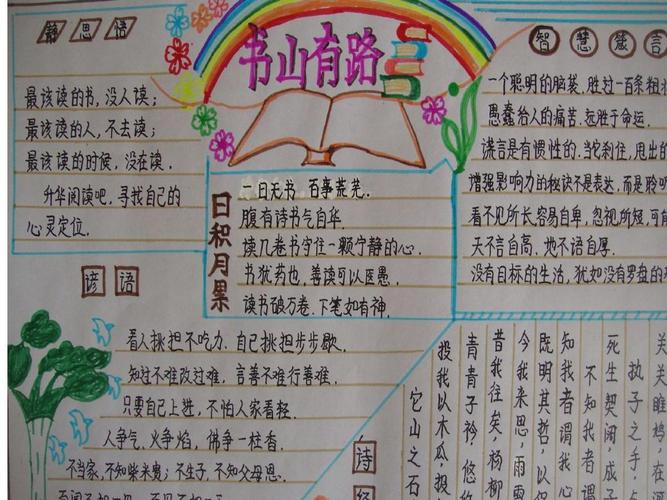 书山有路
静思语
最该读的书，没人读；
最该读的人，不去读；
最该读的时候，没在读．
升华阅读吧．寻找自己的
心灵定位．
智慧箴言
一个聪明的脑袋，胜过一百条粗壮
愚蠢给人的痛苦．远胜于命运．
谎言是有惯性的．当它刹住，甩出的
增强影响力的秘诀不是表达，而是聆听
看不见所长，容易自卑，忽视所短，可能
天不言自高．地不语自厚．
没有目标的生活，犹如没有罗盘的
日积月累
一日无书 百事荒芜．
腹有诗书气自华．
读几卷书守住一颗宁静的心．
书犹药也，善读可以医愚．
读书破万卷．下笔如有神．
谚语
看人挑担不吃力．自己挑担步步歇．
知过不难改过难．言善不难行善难．
只要自己上进，不怕人家看轻．
人争气，火争焰，佛争一炷香．
不当家，不知柴米鬼；不生子，不知父母恩．
诗经
关关雎鸠，在
执子之手，
死生契阔，成
不知我者
知我者谓我心
既明其哲，以
今我来思，雨
昔我往矣，杨柳
青青子衿，悠
投我以木瓜，投
它山之石